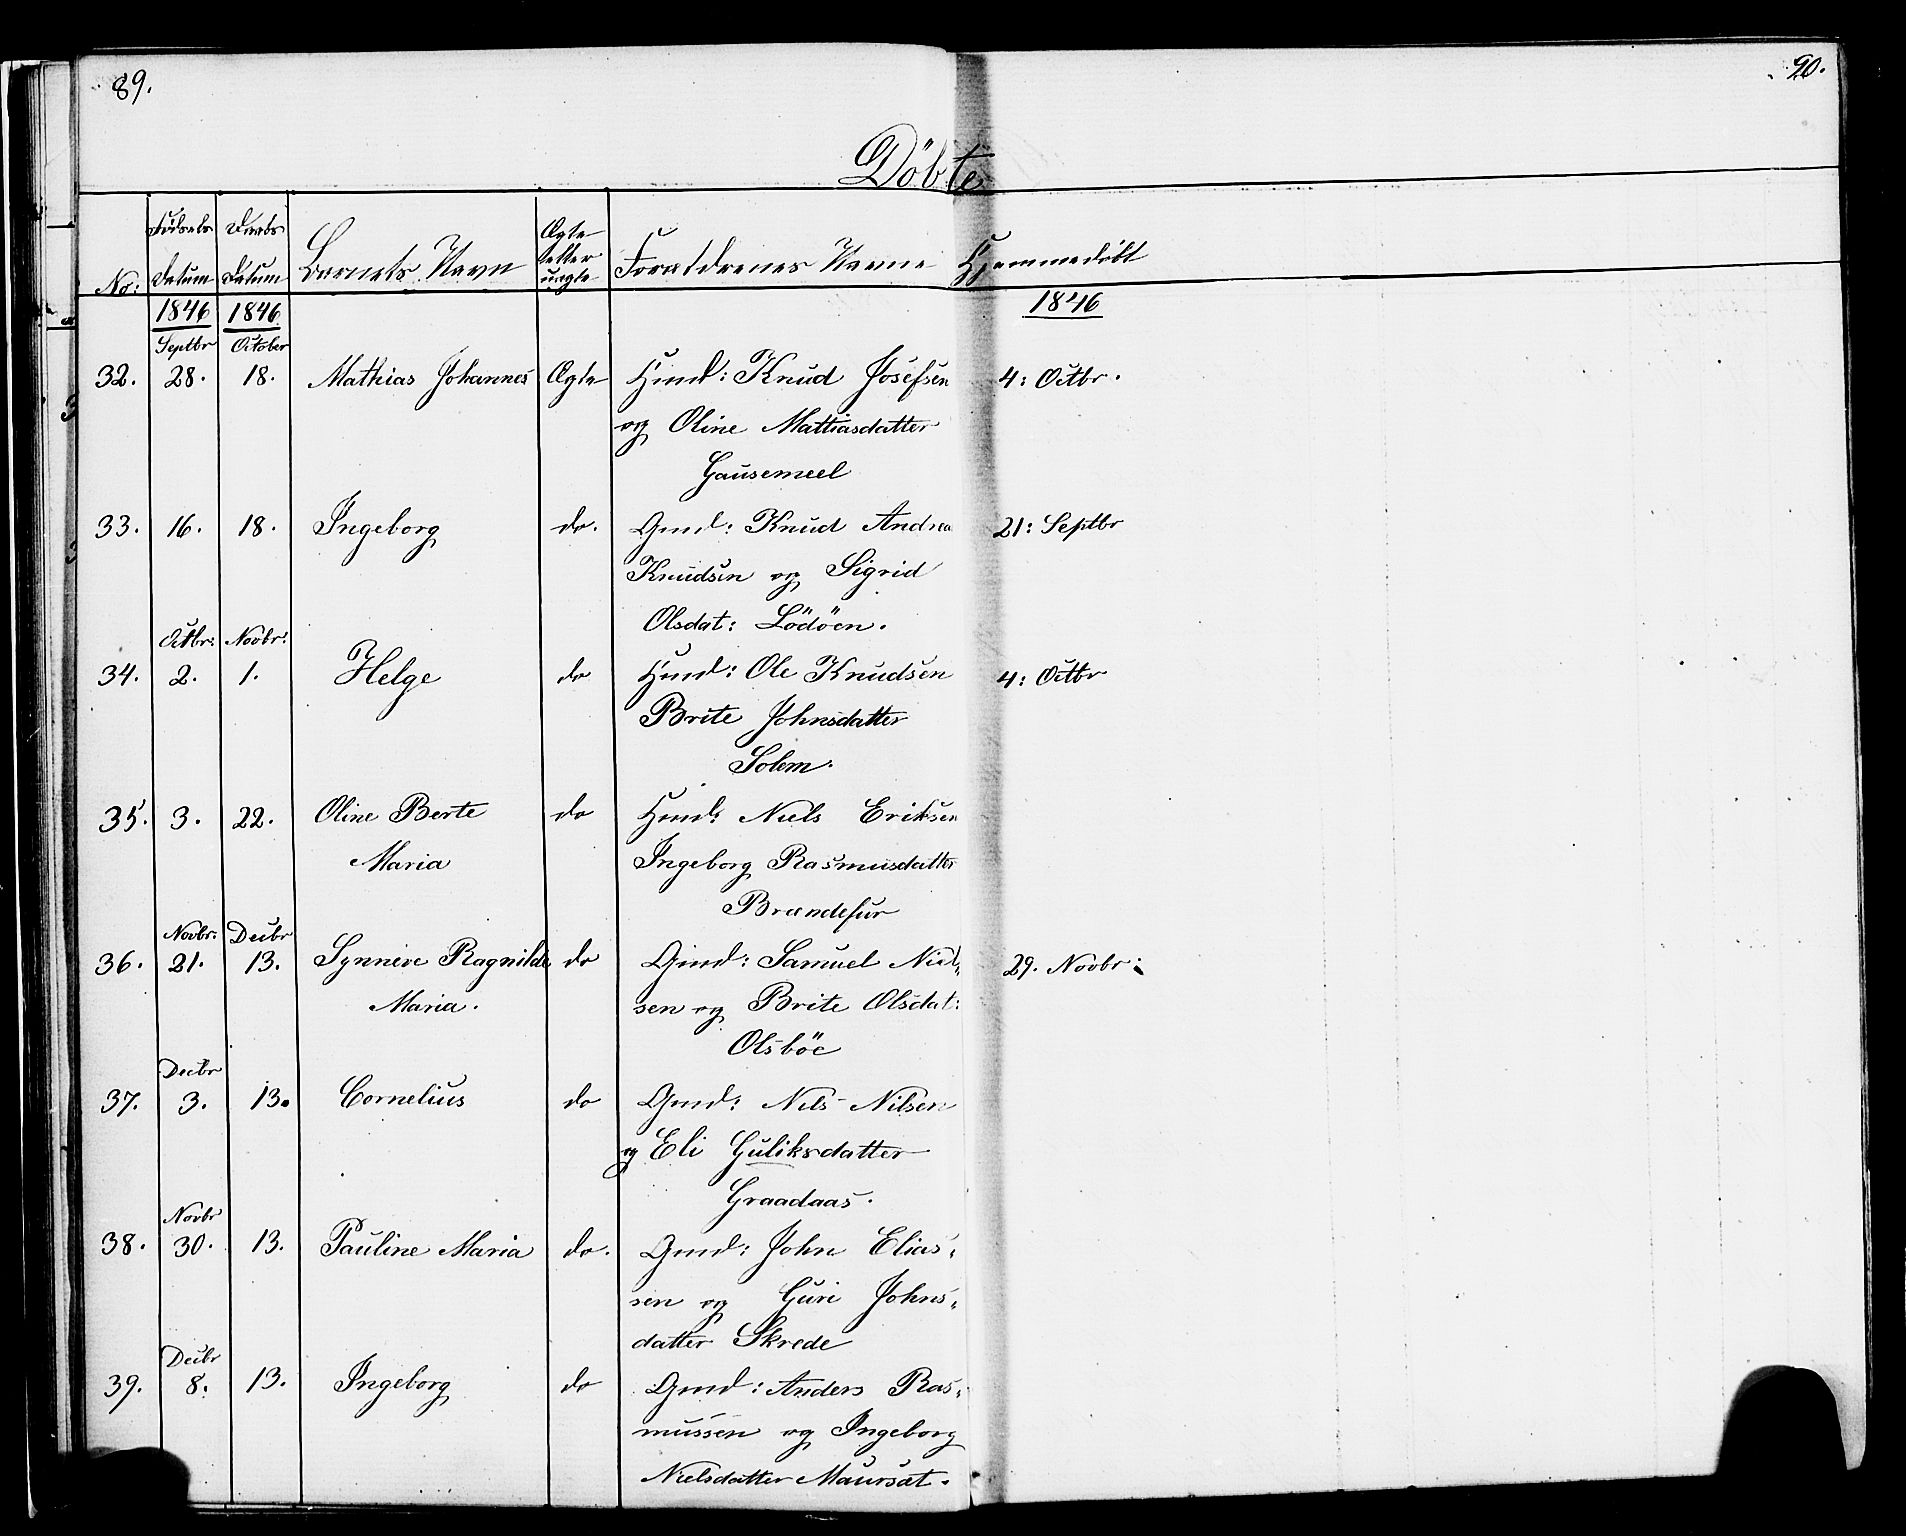 89.
90.
Döbte
No:
Födsels
Datum
Daabs
Datum
Barnets Navn
Ægte
eller
uægte
Forældrenes Navne
Hjemmedöbt
1846
1846
1846
Septbr
October
32. 28. 18. Mathias Johannes Ægte Huusm: Knud Josefsen 4: Octbr.
og Oline Mattiasdatter
Gausemeel
33. 16. 18. Ingeborg do. Gmd: Knud Andrea 21: Septbr
Knudsen og Sigrid
Olsdat: Lödöen.
Octbr: Novbr:
34. 2. 1. Helge do Huusm: Ole Knudsen 4: Octbr
Brite Johnsdatter
Solem.
35. 3. 22. Oline Berte do Huusm: Niels Eriksen
Maria Ingeborg Rasmusdatter
Brandefur
Novbr: Decbr
36. 21. 13. Synneve Ragnilde do Gmd: Samuel Niel- 29. Novbr:
Maria. sen og Brite Olsdat:
Olsböe
Decbr
37. 3. 13. Cornelius do Gmd: Nils Nilsen
og Eli Guliksdatter
Graadaas.
Novbr
38. 30. 13. Pauline Maria do. Gmd: John Elias-
sen og Guri Johns-
datter Skrede
Decbr
39. 8. 13. Ingeborg do Gmd: Anders Ras-
mussen og Ingeborg
Nielsdatter Maursæt.